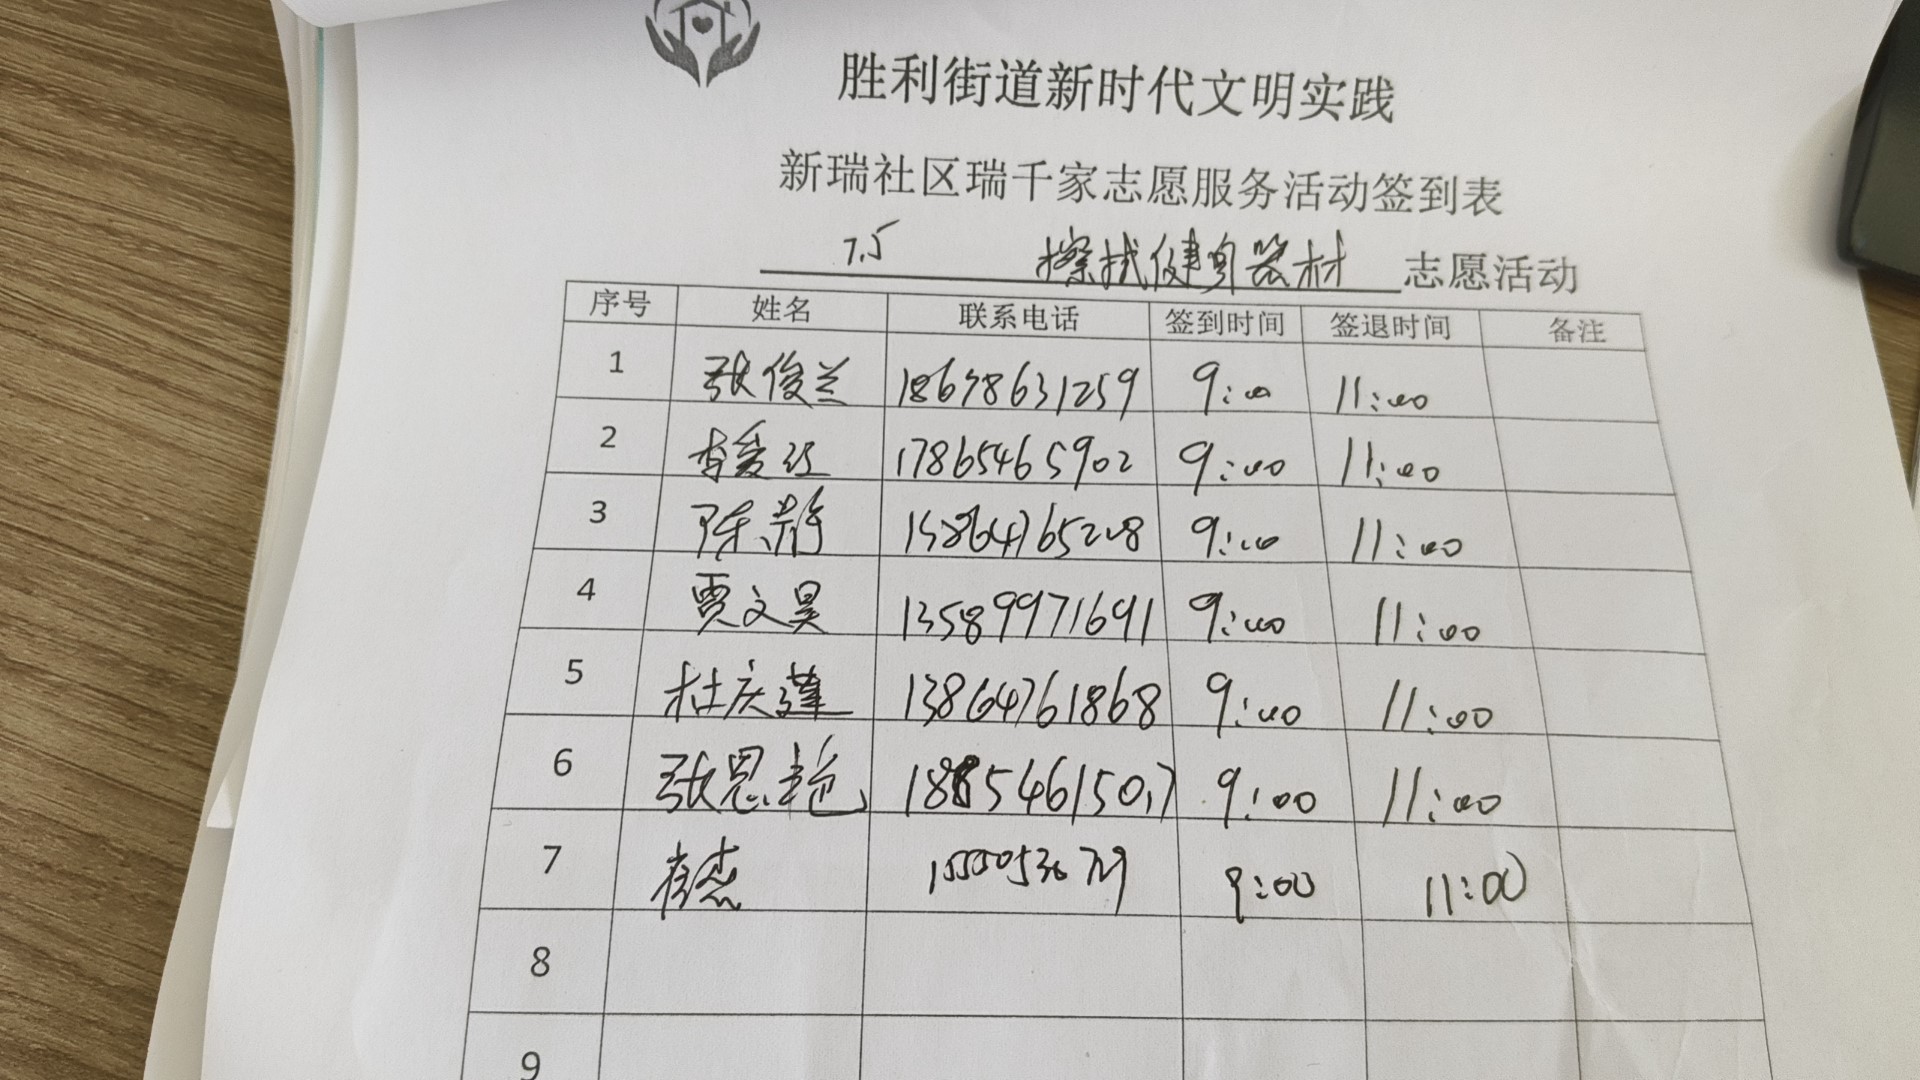 胜利街道新时代文明实践
新瑞社区瑞千家志愿服务活动签到表
7.5 擦拭健身器材 志愿活动
序号 姓名 联系电话 签到时间 签退时间 备注
1 张俊兰 18678631259 9:00 11:00
2 李爱红 17865465902 9:00 11:00
3 陈静 15864765208 9:00 11:00
4 贾文昊 13589971691 9:00 11:00
5 杜庆莲 13864761868 9:00 11:00
6 张恩艳 18854615017 9:00 11:00
7 9:00 11:00
8
9